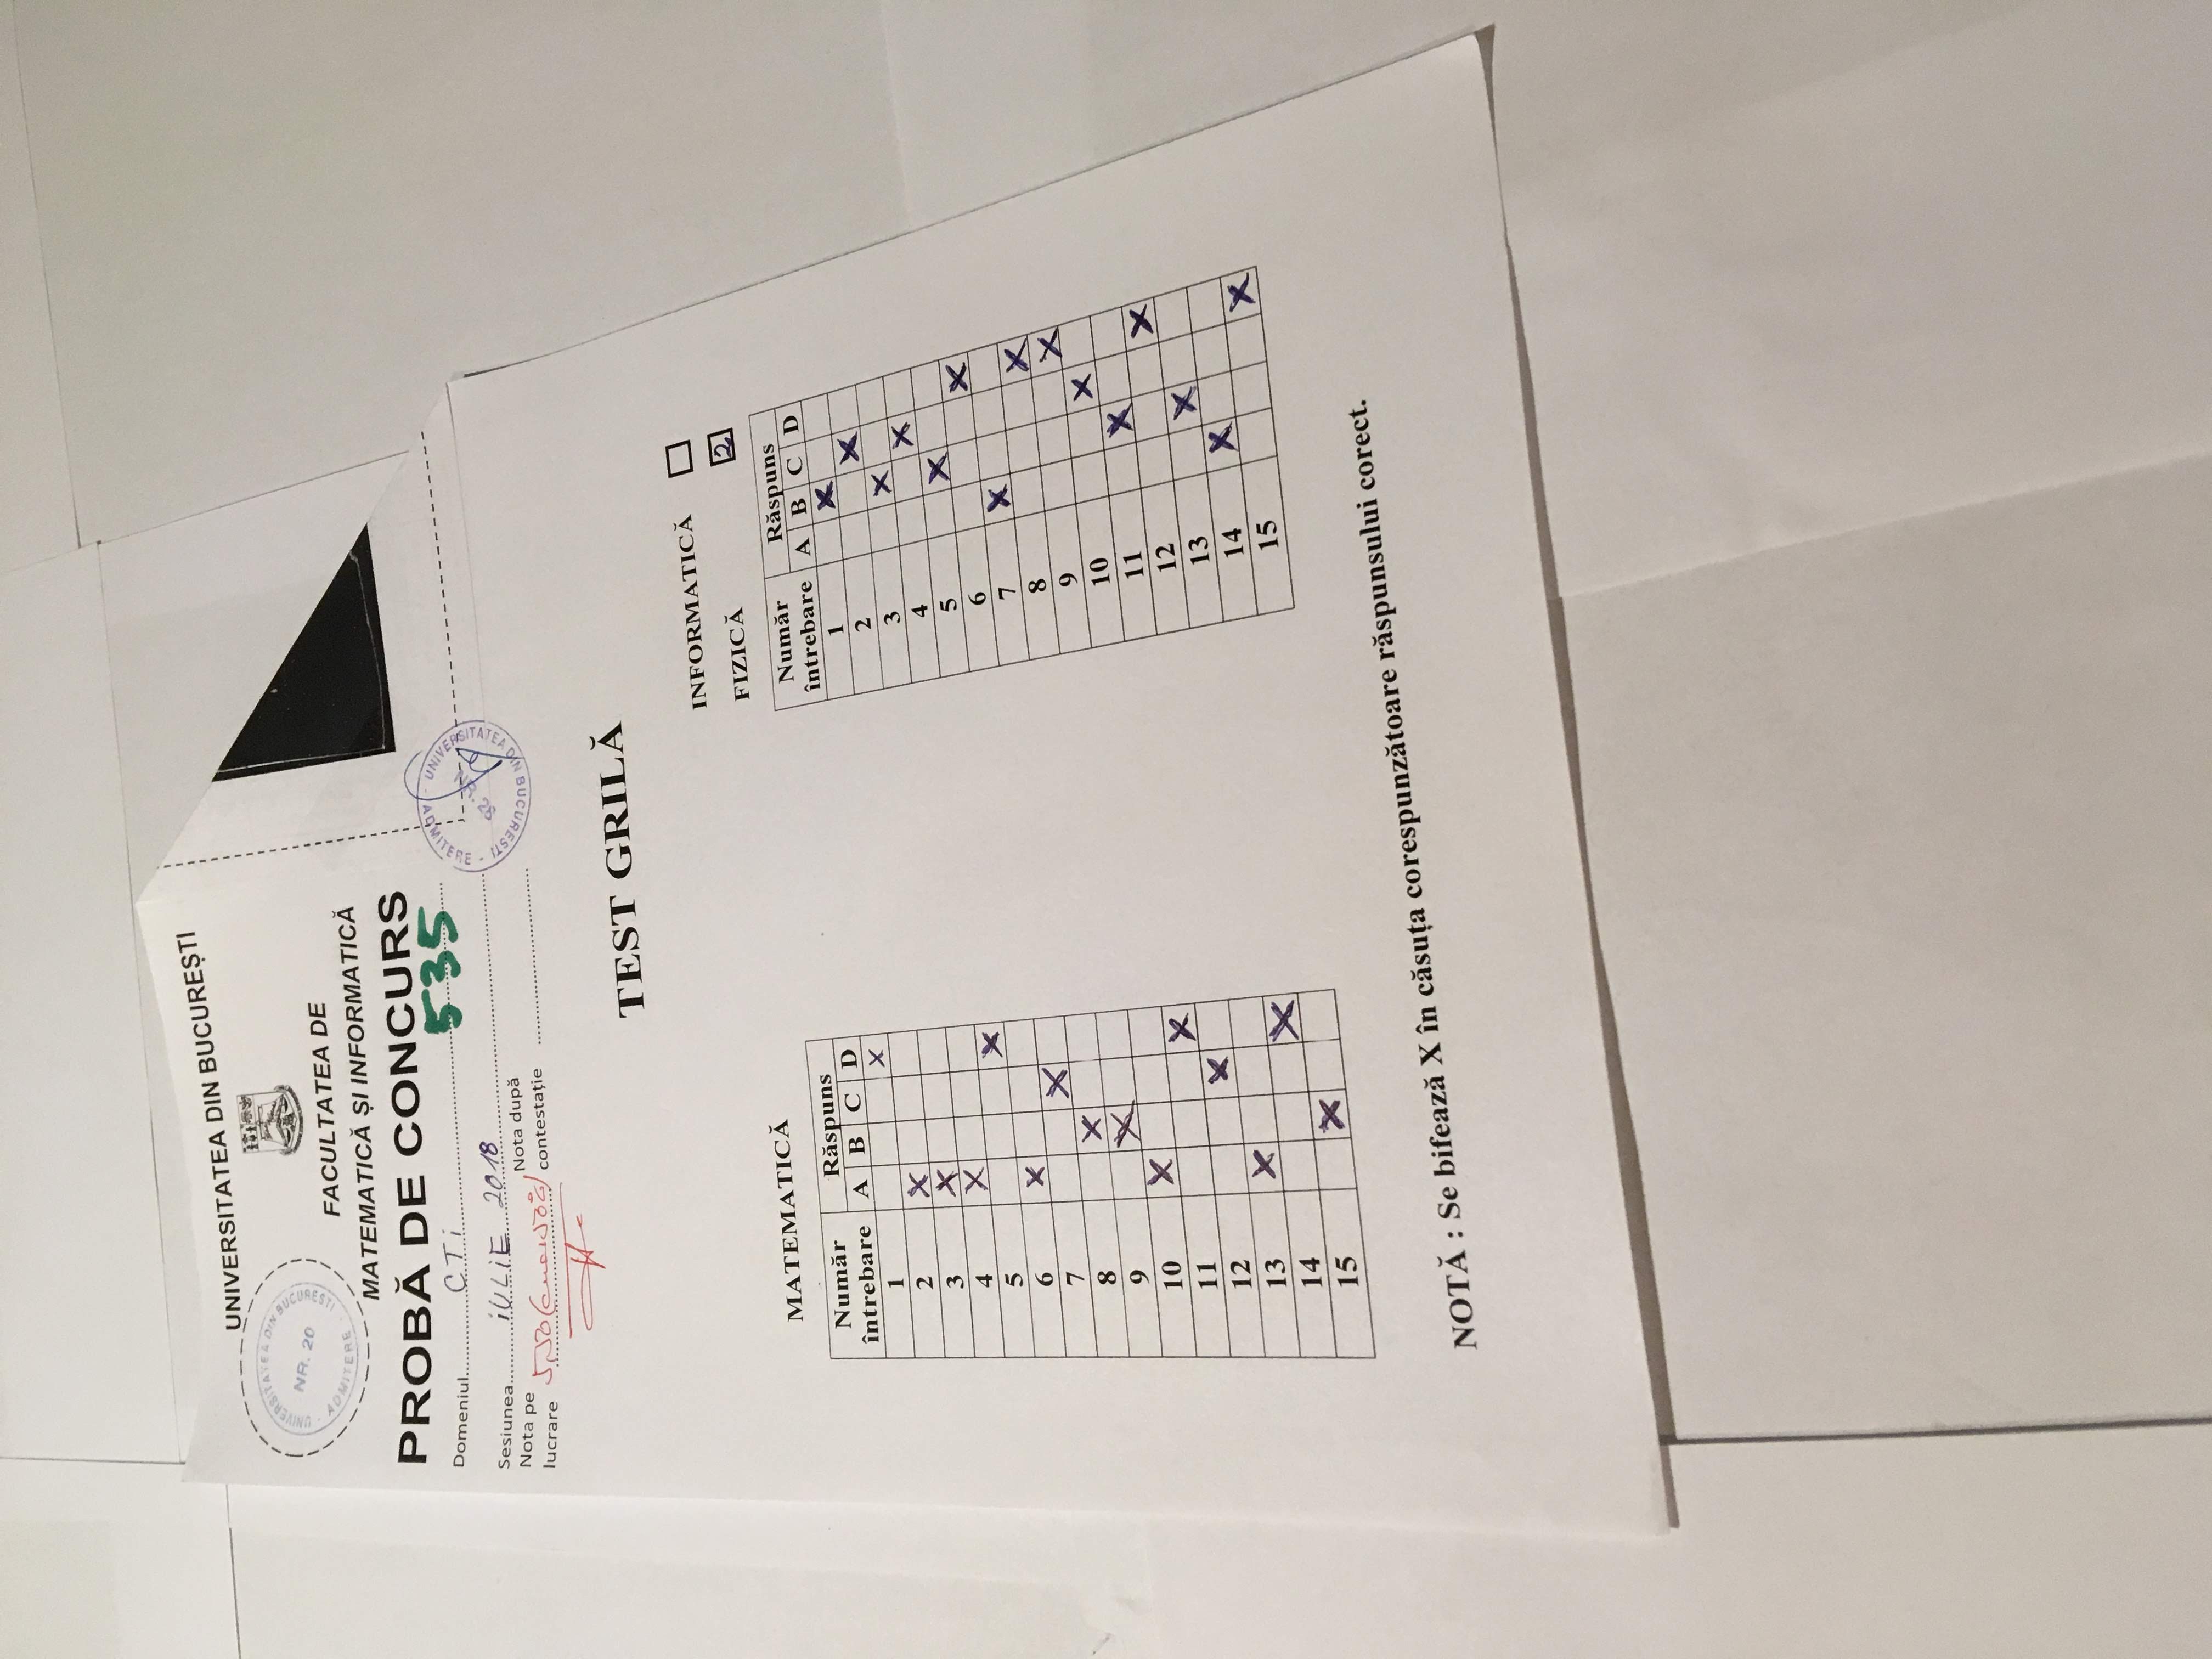 UNIVERSITATEA DIN BUCUREȘTI
UNIVERSITATEA DIN BUCUREȘTI - ADMITERE -
NR. 20
FACULTATEA DE
MATEMATICĂ ȘI INFORMATICĂ
PROBĂ DE CONCURS
Domeniul CTi 535
Sesiunea iULiE 2018
Nota pe lucrare 5,50
Nota după contestație
UNIVERSITATEA DIN BUCUREȘTI - ADMITERE -
TEST GRILĂ
INFORMATICĂ
FIZICĂ 2
MATEMATICĂ
Număr întrebare Răspuns
A B C D
1 X
2 X
3 X
4 X
5 X
6 X
7 X
8 X
9 X
10 X
11 X
12 X
13 X
14 X
15 X
Număr întrebare Răspuns
A B C D
1 X
2 X
3 X
4 X
5 X
6 X
7 X
8 X
9 X
10 X
11 X
12 X
13 X
14 X
15 X
NOTĂ : Se bifează X în căsuța corespunzătoare răspunsului corect.